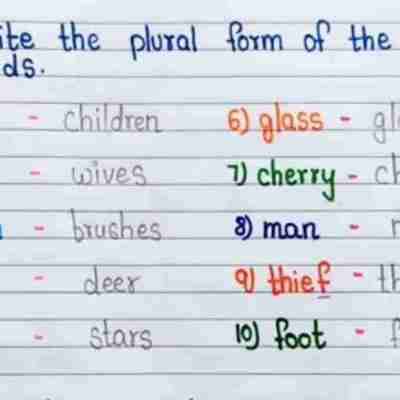 ite the plural form of the
ds.
- children 6) glass - gl
- wives 7) cherry - ch
- brushes 8) man -
- deer 9) thief - th
- stars 10) foot - f